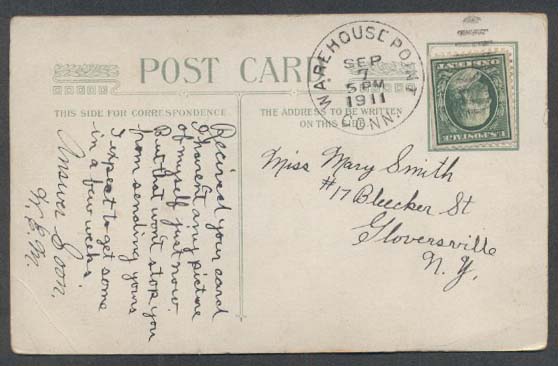 POST CARD
THIS SIDE FOR CORRESPONDENCE.
THE ADDRESS TO BE WRITTEN
ON THIS
WAREHOUSE POINT
SEP
7
5 PM
1911
CONN.
U.S. POSTAGE
ONE CENT
Received your card
I havent any picture
of myself just now
But that wont stop you
from sending yours
I expect to get some
in a few weeks.
Answer Soon.
Miss Mary Smith
#17 Bleecker St
Gloversville
N. Y.